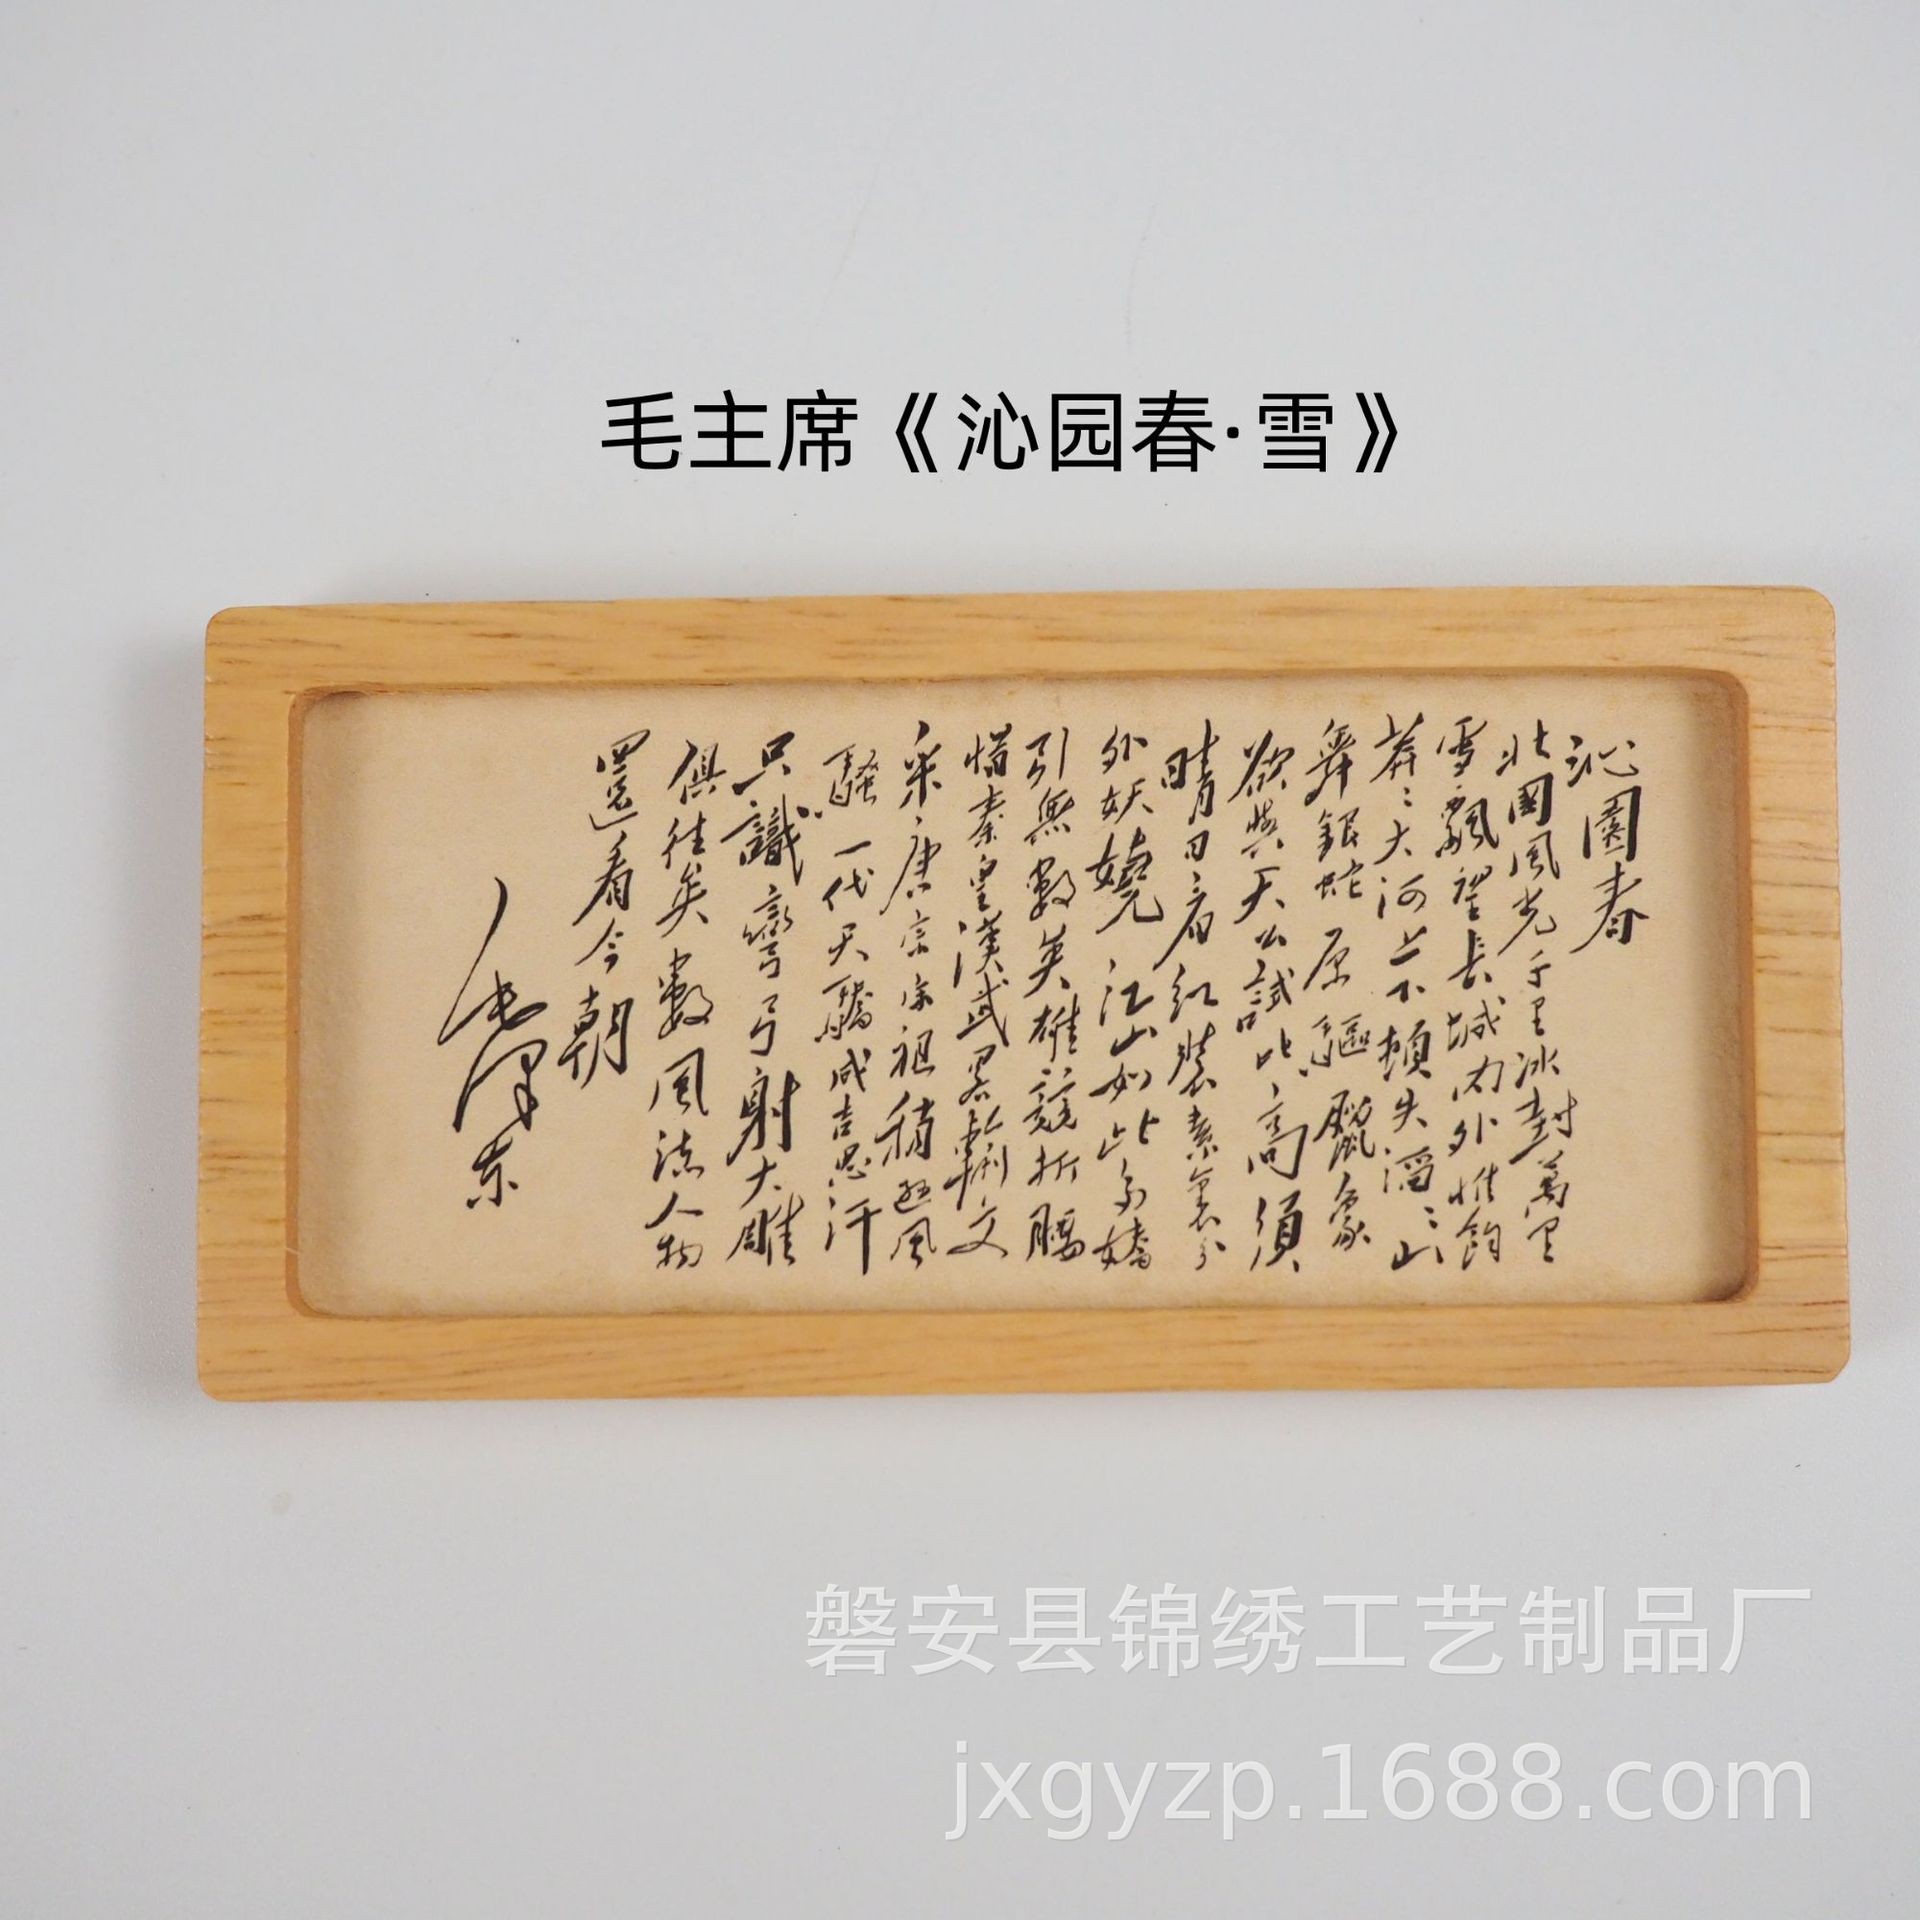 毛主席《沁园春·雪》
沁園春
北國風光千里冰封萬里
雪飄望長城内外惟餘
莽〻大河上下頓失滔〻山
舞銀蛇原驅臘象
欲與天公試比高須
晴日看紅裝素裹分
外妖嬈江山如此多嬌
引無數英雄競折腰
惜秦皇漢武畧輸文
采唐宗宋祖稍遜風
騷一代天驕成吉思汗
只識彎弓射大雕
俱往矣數風流人物
還看今朝
毛澤東
磐安县锦绣工艺制品厂
jxgyzp.1688.com